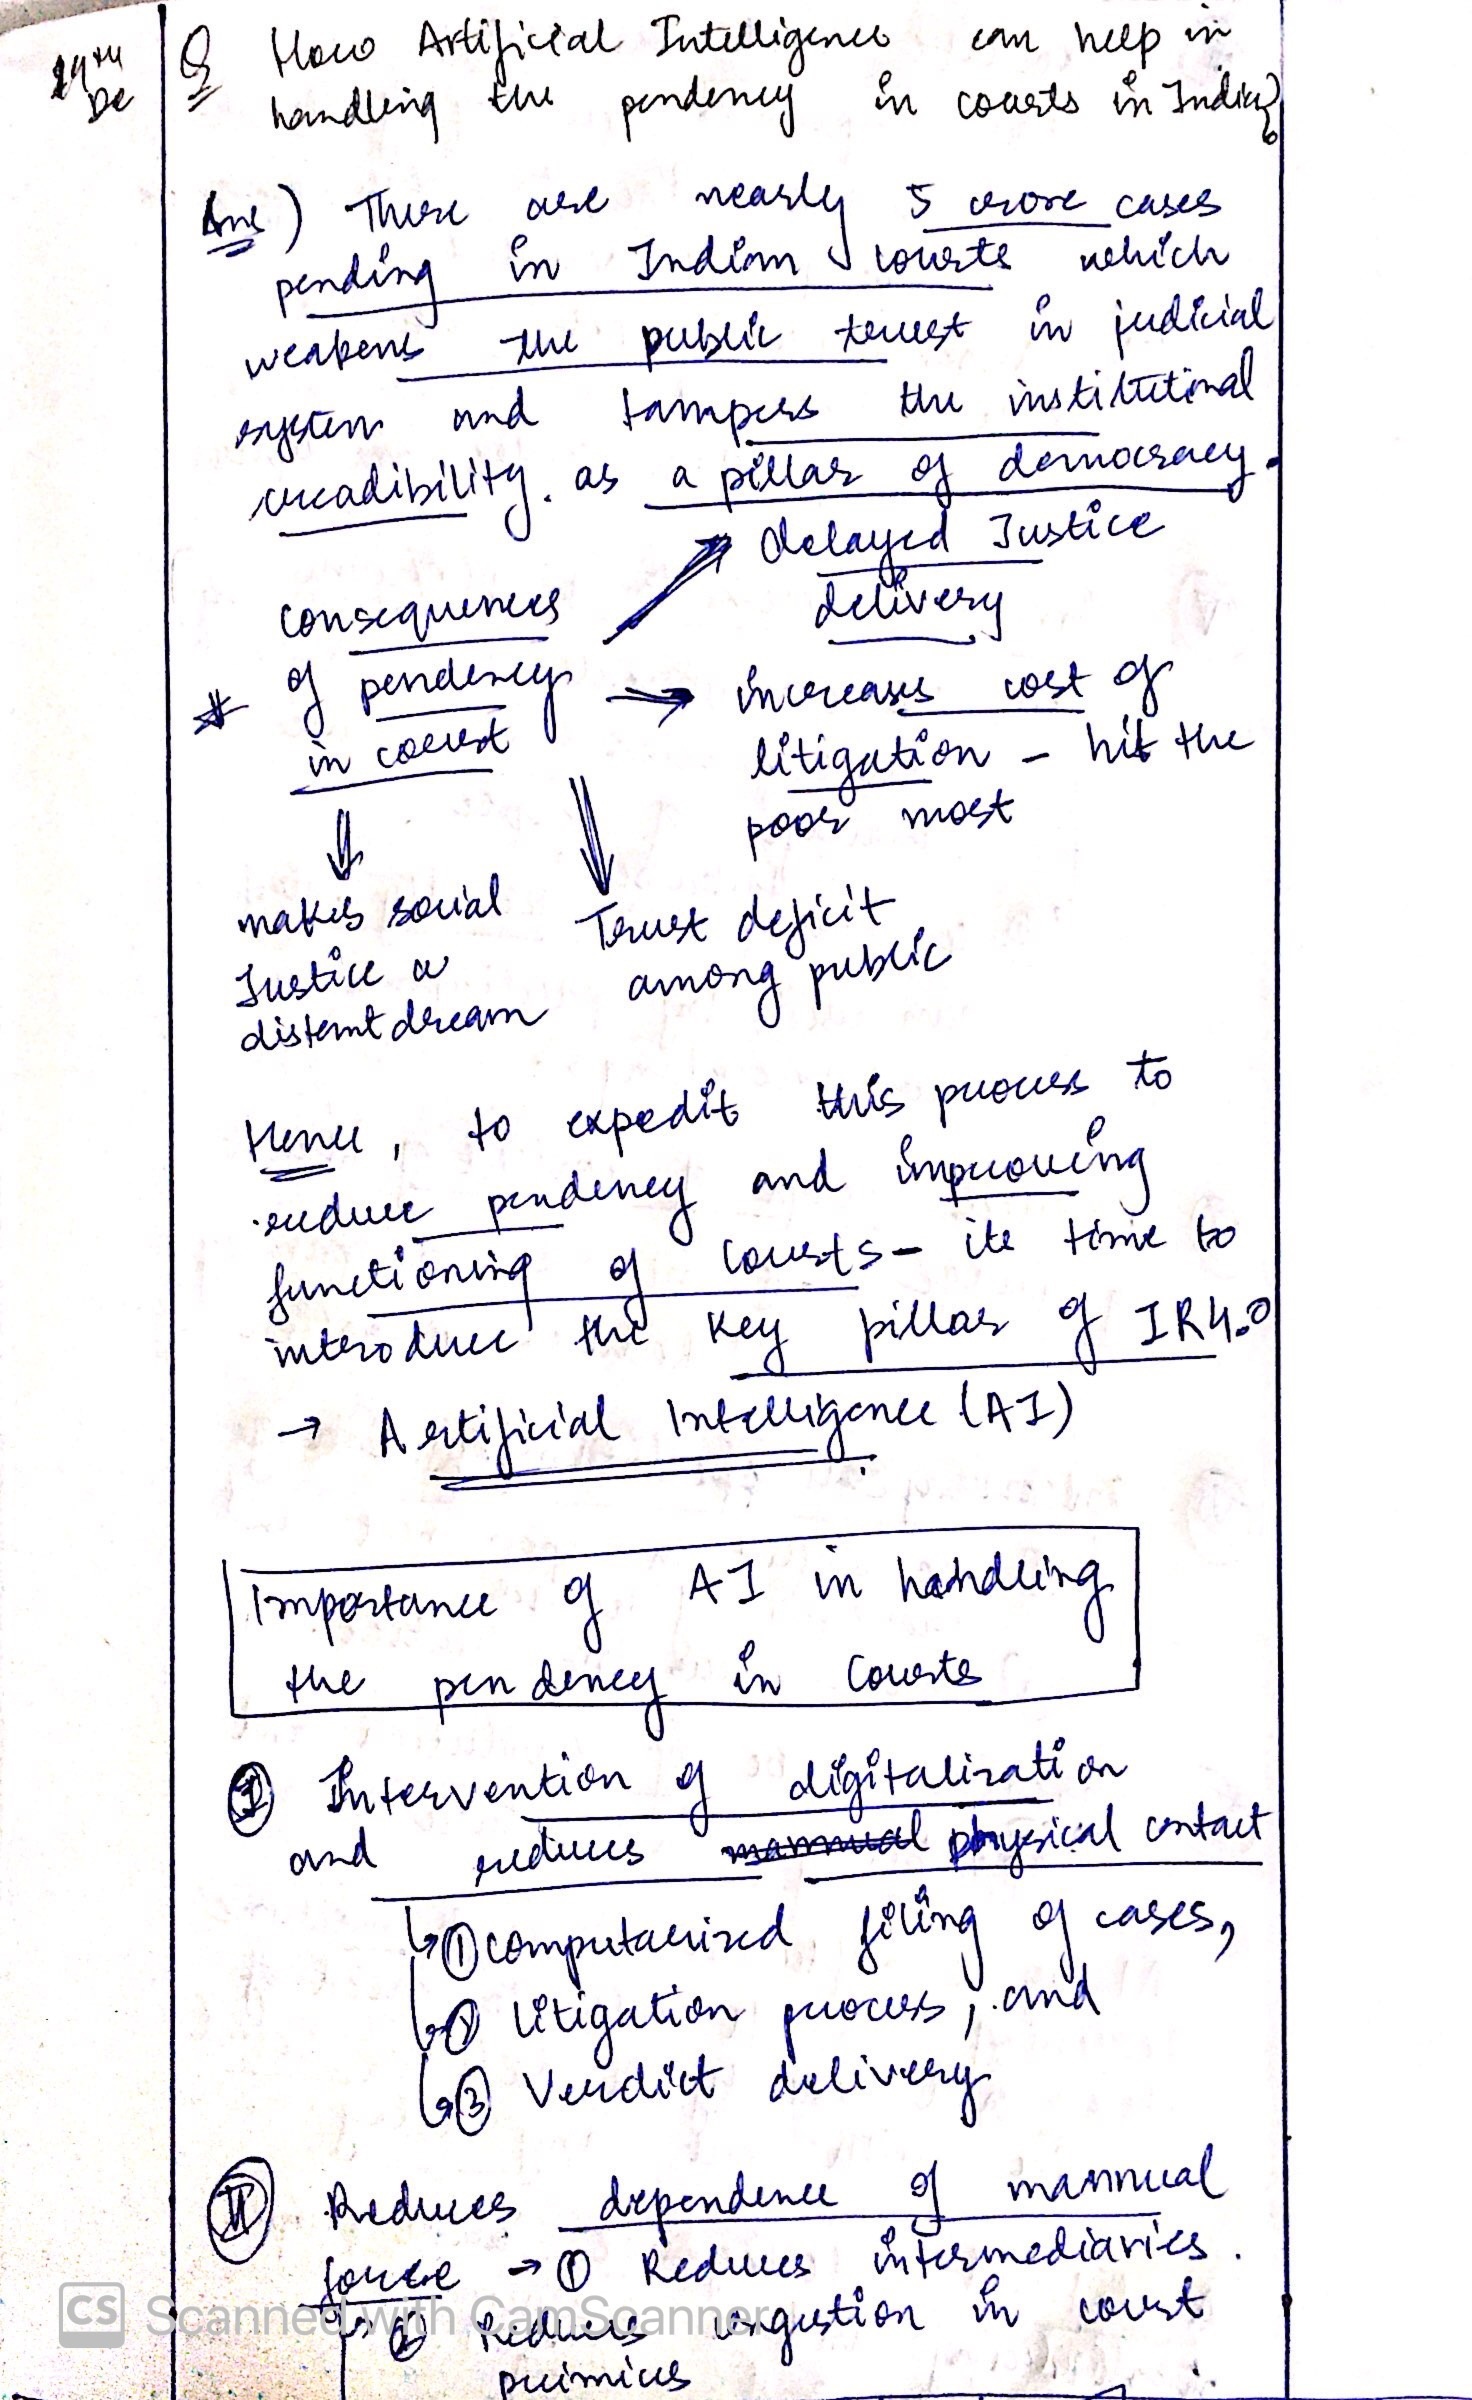 29th
De
Q How Artificial Intelligence can help in
handling the pendency in courts in India?
Ans) There are nearly 5 crore cases
pending in Indian courts which
weakens the public trust in judicial
system and tampers the institutional
creadibility. as a pillar of democracy.
# consequences
of pendency
in court
→ Delayed Justice
delivery
→ increases cost of
litigation - hit the
poor most
makes social
Justice a
distant dream
Trust deficit
among public
Hence, to expedit this process to
reduce pendency and improving
functioning of courts - its time to
introduce the key pillar of IR4.0
→ Artificial Intelligence (AI)
Importance of AI in handling
the pendency in Courts
I Intervention of digitalization
and reduces manual physical contact
↳ ① computerized filing of cases,
↳ ② litigation process, and
↳ ③ Verdict delivery
II Reduces dependence of mannual
force → ① Reduces intermediaries.
↳ ② Reduces congestion in court
primices
CS Scanned with CamScanner